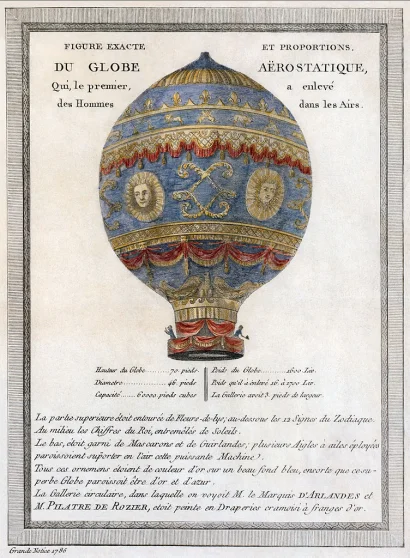 FIGURE EXACTE ET PROPORTIONS,
DU GLOBE AËROSTATIQUE,
Qui, le premier, a enlevé
des Hommes dans les Airs.
Hauteur du Globe..........70 pieds
Diametre...............46 pieds
Capacité.......60000 pieds cubes
Poids du Globe..........1600 Liv.
Poids qu'il à enlevé 16 à 1700 Liv.
La Gallerie avoit 3 pieds de largeur.
La partie superieure étoit entourée de Fleurs-de-lys; au-dessous les 12 Signes du Zodiaque.
Au milieu les Chiffres du Roi, entremêlés de Soleils.
Le bas, étoit garni de Mascarons et de Guirlandes; plusieurs Aigles à ailes éployées
paroissoient suporter en l'air cette puissante Machine.
Tous ces ornemens étoient de couleur d'or sur un beau fond bleu, ensorte que ce su-
perbe Globe paroissoit être d'or et d'azur.
La Gallerie circulaire, dans laquelle on voyoit M. le Marquis D'ARLANDES et
M. PILATRE DE ROZIER, etoit peinte en Draperies cramoisi à franges d'or.
Grande Notice 1786